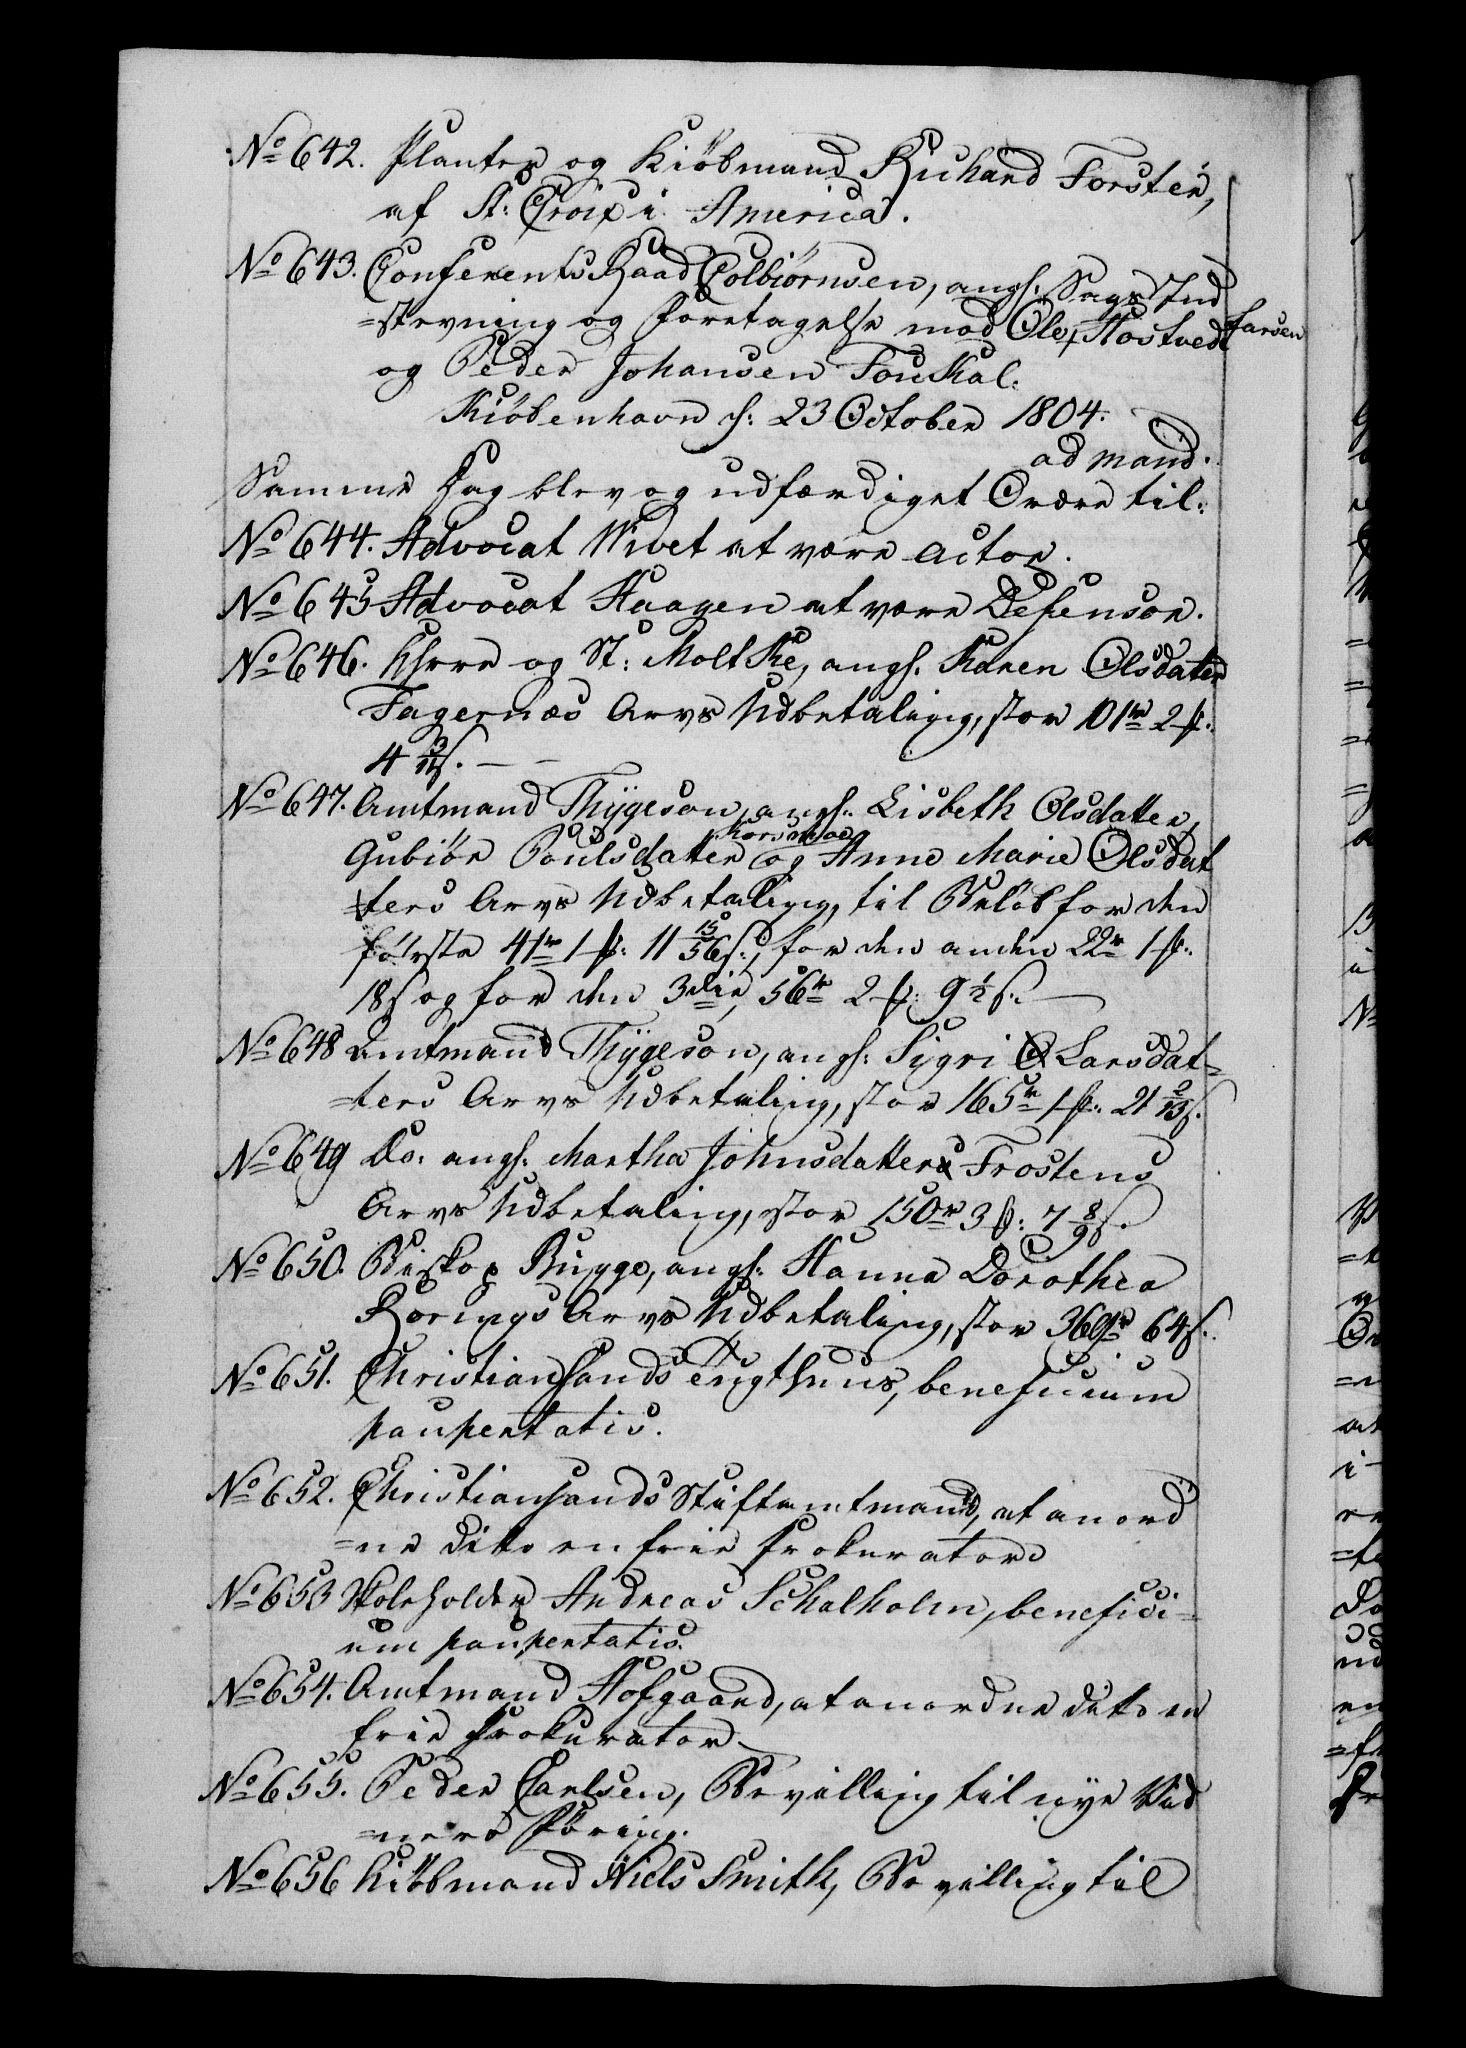 No 642. Planter og Kiöbmand Richard Forster,
af St: Croix i America.
No 643. Conferents Raad Colbiörnsen, angs. Sags Ind
=stevning og Foretagelse mod Ole Larsen Hostvedt
og Peder Johansen Fouskal.
Kiöbenhavn d: 23 October 1804.
ad mand.
Samme Dag blev og udfærdiget Ordre til:
No 644. Advocat Wivet at være Actor.
No 645 Advocat Haagen at være Defensor.
No 646. Khrre og St: Moltke, angs. Karen Olsdatter
Fagernæs Arvs Udbetaling, stor 101 r 2 #:
4 3/11 s.
No 647. Amtmand Thÿgeson, angs: Lisbeth Olsdatter,
Gubiör Poulsdatter Korsmoe og Anne Marie Olsdat
ters Arvs Udbetaling, til Beløb for den
förste 41 r 1 #: 11 15/56 s:, for den anden 22 r 1 #:
18 s og for den 3die, 56 r 2 #: 9 1/2 s.
No 648 Amtmand Thÿgeson, angs: Sigri Larsdat=
=ters Arvs Udbetaling, stor 165 r 1 #: 21 2/13 s.
No 649 Do. angs. Martha Johnsdatter Frostens
Arvs Udbetaling, stor 150 r 3 #: 7 8/9 s.
No 650. Biskop Bugge, angs: Hanna Dorothea
Rorings Arvs Udbetaling, stor 369 r 64 s.
No 651. Christiansands Tugthuus, beneficium
paupertatis.
No 652. Christiansands Stiftamtmand, at anord
=ne dito en frie Prokurator
No 653 Skoleholder Andreas Schalholm, benefici=
um paupertatis.
No 654. Amtmand Hofgaard, at anordne dito en
frie Prokurator
No 655. Peder Carlsen, Bevilling til nye Vid
=ners Föring.
No 656 Kiöbmand Niels Smith, Bevilling til